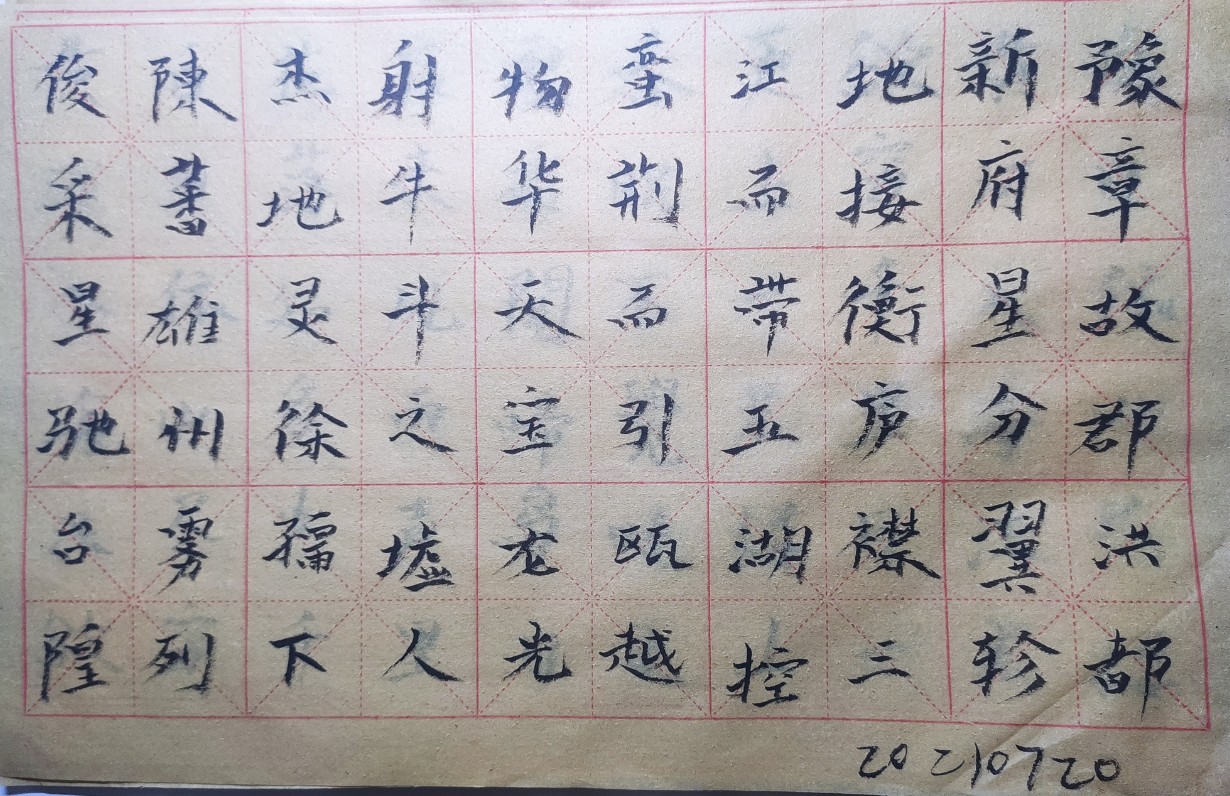 豫章故郡洪都
新府星分翼轸
地接衡庐襟三
江而帶五湖控
蛮荆而引瓯越
物华天宝龙光
射牛斗之墟人
杰地灵徐孺下
陳蕃雄州雾列
俊采星驰台隍
20210720